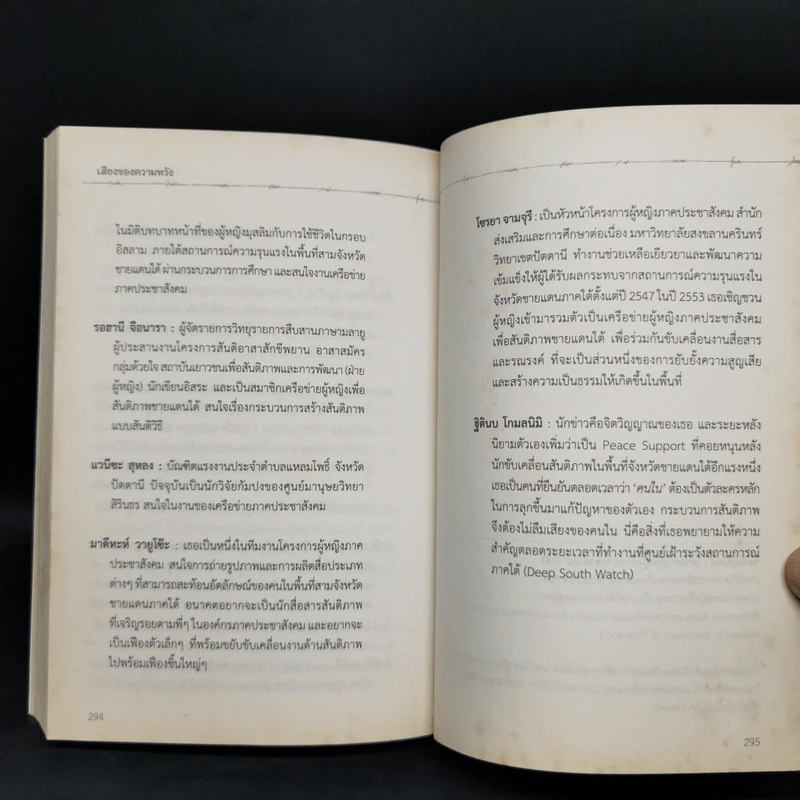 เสียงของความหวัง
ในมิติบทบาทหน้าที่ของผู้หญิงมุสลิมกับการใช้ชีวิตในกรอบ
อิสลาม ภายใต้สถานการณ์ความรุนแรงในพื้นที่สามจังหวัด
ชายแดนใต้ ผ่านกระบวนการการศึกษา และสนใจงานเครือข่าย
ภาคประชาสังคม
รอฮานี จือนารา : ผู้จัดรายการวิทยุรายการสืบสานภาษามลายู
ผู้ประสานงานโครงการสันติอาสาสักขีพยาน อาสาสมัคร
กลุ่มด้วยใจ สถาบันเยาวชนเพื่อสันติภาพและการพัฒนา (ฝ่าย
ผู้หญิง) นักเขียนอิสระ และเป็นสมาชิกเครือข่ายผู้หญิงเพื่อ
สันติภาพชายแดนใต้ สนใจเรื่องกระบวนการสร้างสันติภาพ
แบบสันติวิธี
แวนีซะ สุหลง : บัณฑิตแรงงานประจำตำบลแหลมโพธิ์ จังหวัด
ปัตตานี ปัจจุบันเป็นนักวิจัยกัมปงของศูนย์มานุษยวิทยา
สิรินธร สนใจในงานของเครือข่ายภาคประชาสังคม
มาดีหะห์ วายูโซ๊ะ : เธอเป็นหนึ่งในทีมงานโครงการผู้หญิงภาค
ประชาสังคม สนใจการถ่ายรูปภาพและการผลิตสื่อประเภท
ต่างๆ ที่สามารถสะท้อนอัตลักษณ์ของคนในพื้นที่สามจังหวัด
ชายแดนภาคใต้ อนาคตอยากจะเป็นนักสื่อสารสันติภาพ
ที่เจริญรอยตามพี่ๆ ในองค์กรภาคประชาสังคม และอยากจะ
เป็นเฟืองตัวเล็กๆ ที่พร้อมขยับขับเคลื่อนงานด้านสันติภาพ
ไปพร้อมเฟืองชิ้นใหญ่ๆ
294
โซรยา จามจุรี : เป็นหัวหน้าโครงการผู้หญิงภาคประชาสังคม สำนัก
ส่งเสริมและการศึกษาต่อเนื่อง มหาวิทยาลัยสงขลานครินทร์
วิทยาเขตปัตตานี ทำงานช่วยเหลือเยียวยาและพัฒนาความ
เข้มแข็งให้ผู้ได้รับผลกระทบจากสถานการณ์ความรุนแรงใน
จังหวัดชายแดนภาคใต้ตั้งแต่ปี 2547 ในปี 2553 เธอเชิญชวน
ผู้หญิงเข้ามารวมตัวเป็นเครือข่ายผู้หญิงภาคประชาสังคม
เพื่อสันติภาพชายแดนใต้ เพื่อร่วมกันขับเคลื่อนงานสื่อสาร
และรณรงค์ ที่จะเป็นส่วนหนึ่งของการยับยั้งความสูญเสีย
และสร้างความเป็นธรรมให้เกิดขึ้นในพื้นที่
ฐิตินบ โกมลนิมิ : นักข่าวคือจิตวิญญาณของเธอ และระยะหลัง
นิยามตัวเองเพิ่มว่าเป็น Peace Support ที่คอยหนุนหลัง
นักขับเคลื่อนสันติภาพในพื้นที่จังหวัดชายแดนใต้อีกแรงหนึ่ง
เธอเป็นคนที่ยืนยันตลอดเวลาว่า 'คนใน' ต้องเป็นตัวละครหลัก
ในการลุกขึ้นมาแก้ปัญหาของตัวเอง กระบวนการสันติภาพ
จึงต้องไม่ลืมเสียงของคนใน นี่คือสิ่งที่เธอพยายามให้ความ
สำคัญตลอดระยะเวลาที่ทำงานที่ศูนย์เฝ้าระวังสถานการณ์
ภาคใต้ (Deep South Watch)
295